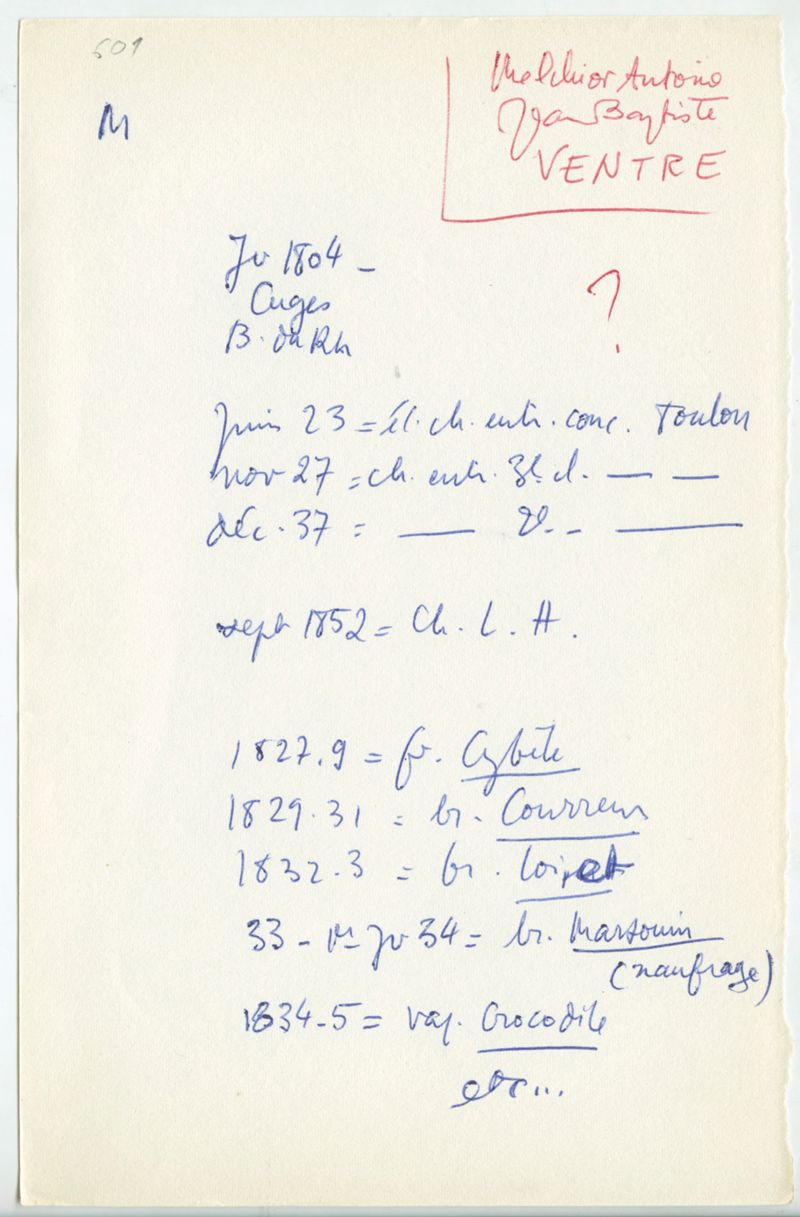 501
M
Melchior Antoine
Jean Baptiste
VENTRE
Jv 1804 -
Cuges
B. du Rh
?
Juin 23 = él. ch. entr. conc. Toulon
nov 27 = ch. entr. 3e cl. — —
déc. 37 = — 2e - —
sept 1852 = Ch. L. H.
1827.9 = fr. Cybèle
1829.31 = br. Coureur
1832.3 = br. Loiret
33 - Jv 34 = br. Marsouin
(naufrage)
1834-5 = vap. Crocodile
etc...